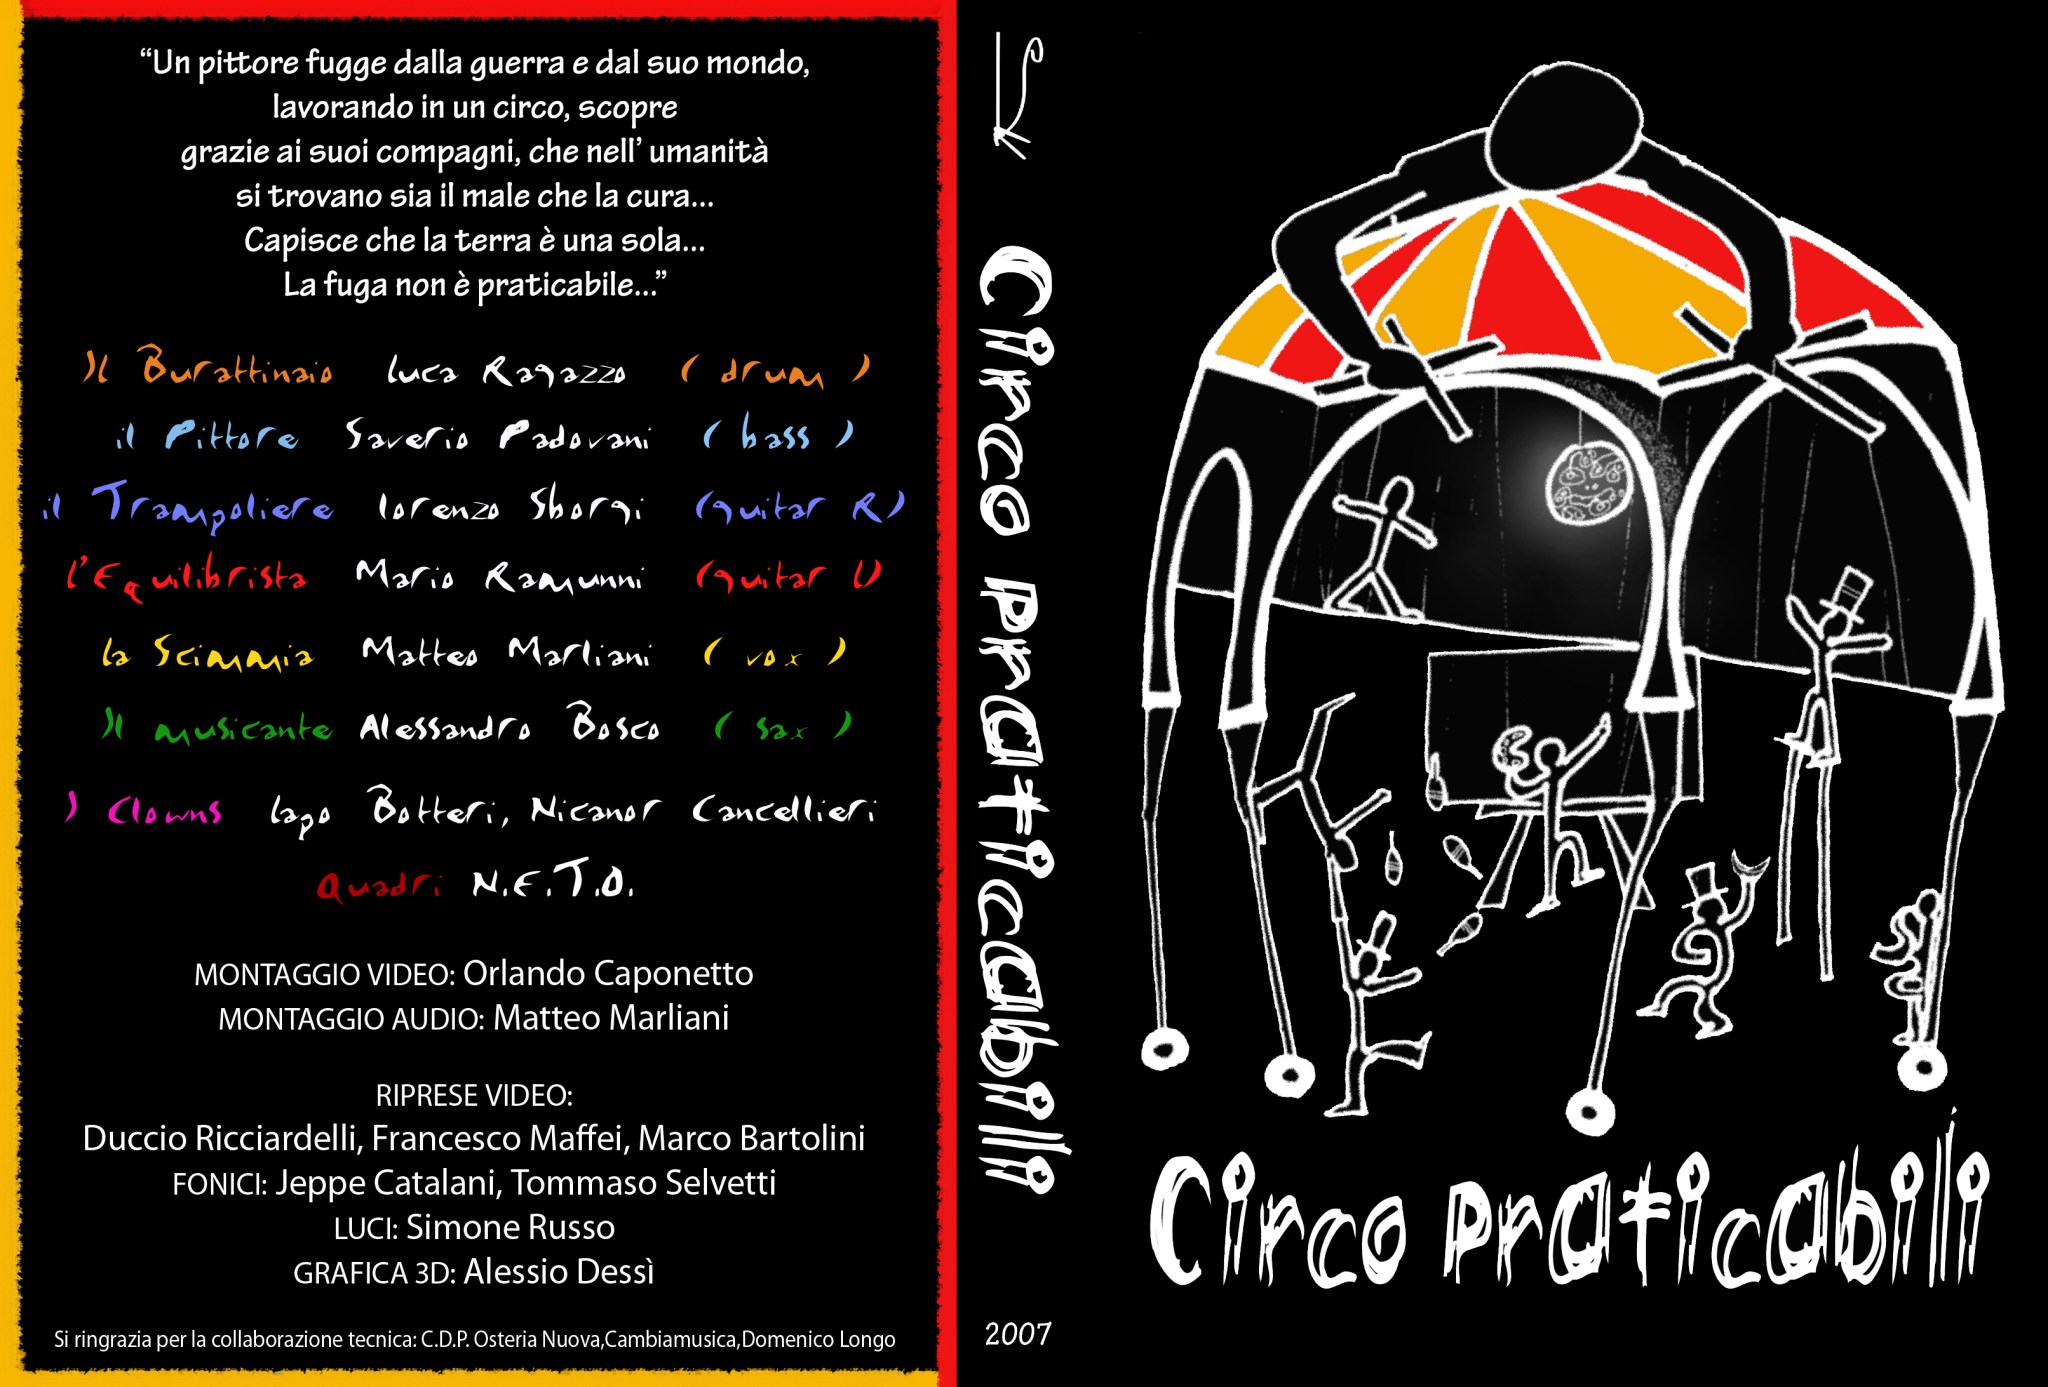 “Un pittore fugge dalla guerra e dal suo mondo,
lavorando in un circo, scopre
grazie ai suoi compagni, che nell’ umanità
si trovano sia il male che la cura...
Capisce che la terra è una sola...
La fuga non è praticabile...”
Il Burattinaio luca Ragazzo ( drum )
il Pittore Saverio Padovani ( bass )
il Trampoliere lorenzo Sborgi (guitar R)
l’Equilibrista Mario Ramunni (guitar L)
la Scimmia Matteo Marliani ( vox )
Il musicante Alessandro Bosco ( sax )
I Clowns Iago Botteri, Nicanor Cancellieri
Quadri N.E.T.O.
MONTAGGIO VIDEO: Orlando Caponetto
MONTAGGIO AUDIO: Matteo Marliani
RIPRESE VIDEO:
Duccio Ricciardelli, Francesco Maffei, Marco Bartolini
FONICI: Jeppe Catalani, Tommaso Selvetti
LUCI: Simone Russo
GRAFICA 3D: Alessio Dessì
Si ringrazia per la collaborazione tecnica: C.D.P. Osteria Nuova,Cambiamusica,Domenico Longo
Circo praticabili
2007
Circo praticabili